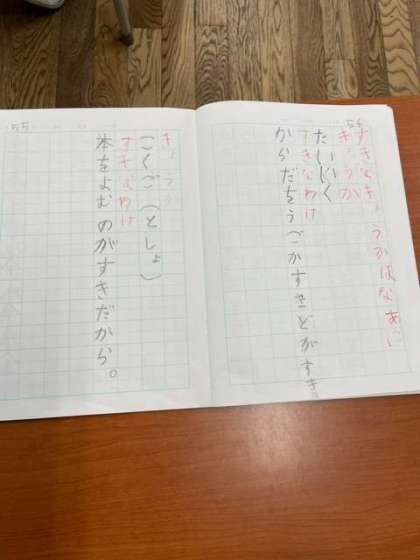 56
すきなきょうかはなあに
きょうか
たいいく
すきなわけ
からだをうごかすことがすき。
55
きょうか
こくご(としょ)
すきなわけ
本をよむのがすきだから。